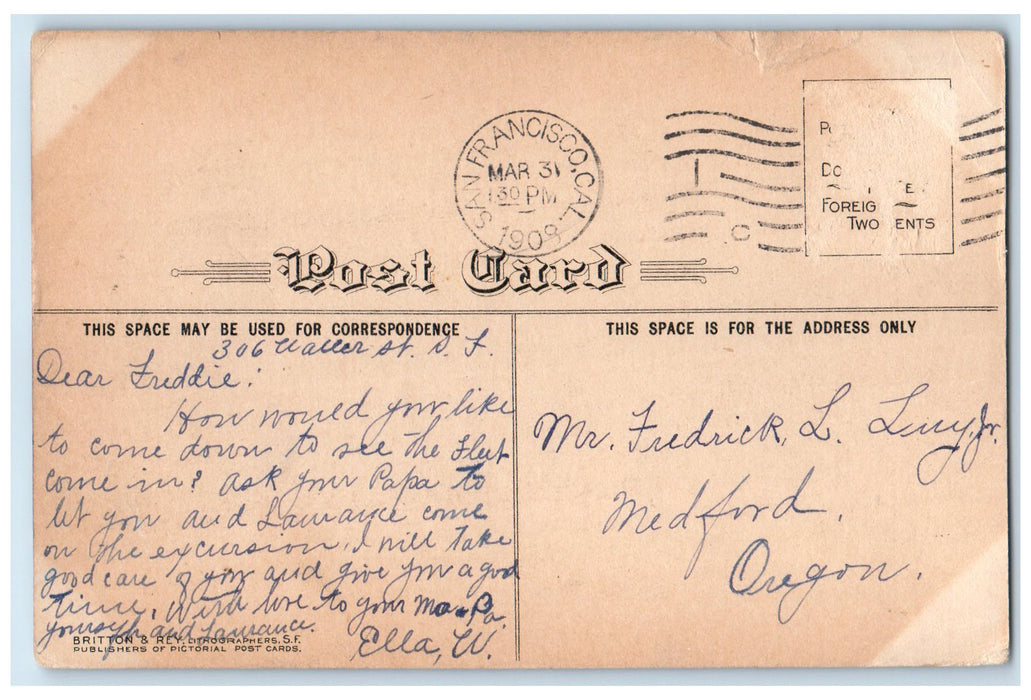 SAN FRANCISCO, CAL.
MAR 31
30 PM
1908
FOREIG
TWO ENTS
Post Card
THIS SPACE MAY BE USED FOR CORRESPONDENCE
THIS SPACE IS FOR THE ADDRESS ONLY
306 Waller St. S. F.
Dear Freddie:
How would you like
to come down to see the Fleet
come in? ask your Papa to
let you and Laurance come
on the excursion, I will take
good care of you and give you a good
time, With love to your Ma - Pa.
yourself and Laurance.
Ella, W.
BRITTON & REY, LITHOGRAPHERS, S.F.
PUBLISHERS OF PICTORIAL POST CARDS.
Mr. Fredrick, L. Lucy, Jr.
Medford,
Oregon.